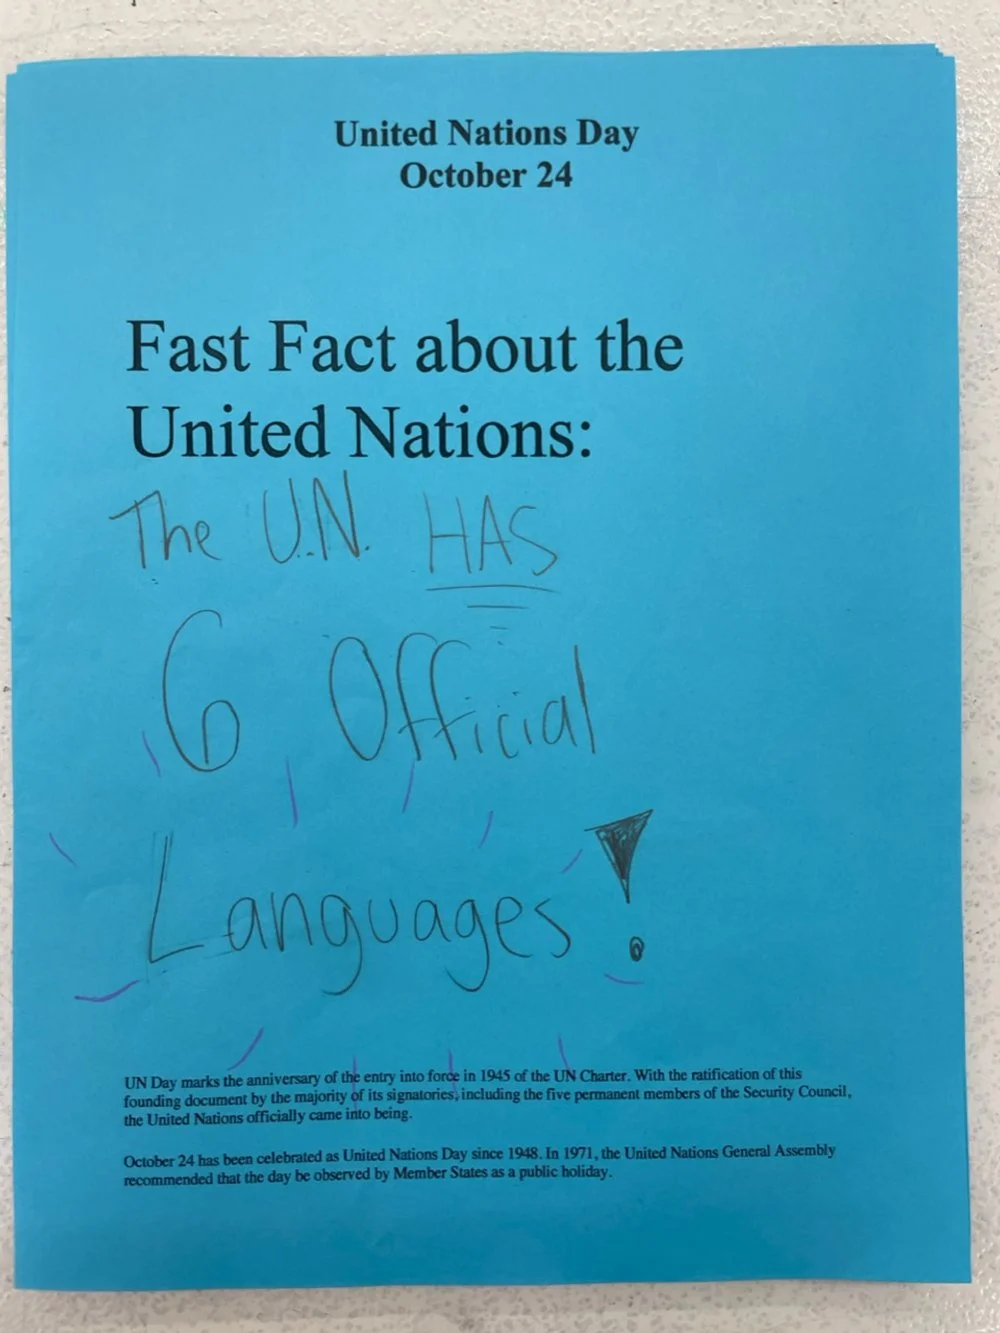 United Nations Day
October 24
Fast Fact about the
United Nations:
The U.N. HAS
6 Official
Languages!
UN Day marks the anniversary of the entry into force in 1945 of the UN Charter. With the ratification of this
founding document by the majority of its signatories, including the five permanent members of the Security Council,
the United Nations officially came into being.
October 24 has been celebrated as United Nations Day since 1948. In 1971, the United Nations General Assembly
recommended that the day be observed by Member States as a public holiday.